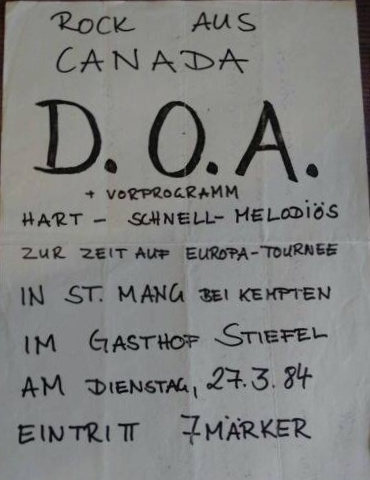 ROCK AUS
CANADA
D.O.A.
+ VORPROGRAMM
HART - SCHNELL - MELODIÖS
ZUR ZEIT AUF EUROPA-TOURNEE
IN ST. MANG BEI KEMPTEN
IM GASTHOF STIEFEL
AM DIENSTAG, 27.3.84
EINTRITT 7 MÄRKER